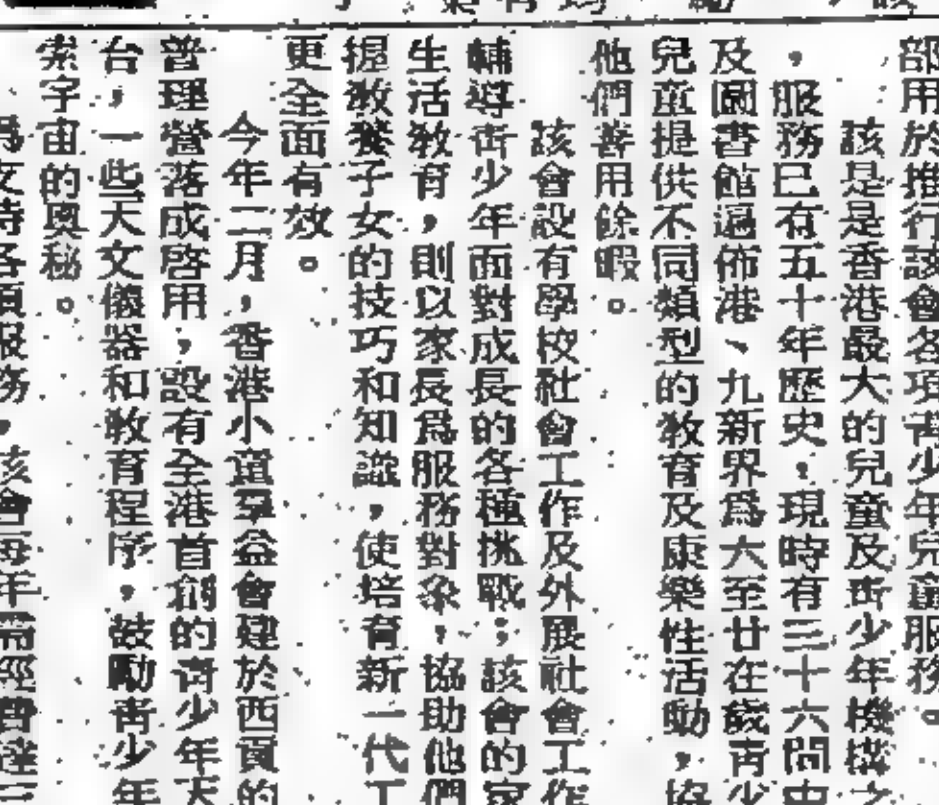 部用於推行該會各項青少年兒童服務。
該是是香港最大的兒童及青少年機構之
，服務已有五十年歷史；現時有三十六間中
及圖書館遍佈港、九新界爲大至廿在歲青少
兒童提供不同類型的教育及康樂性活動，協
他們善用餘暇。
該會設有學校社會工作及外展社會工作
輔導青少年面對成長的各種挑戰；該會的家
生活教育，則以家長爲服務對象，協助他們
提教養子女的技巧和知識，使培育新一代工
更全面有效。
今年二月，香港小童羣益會建於西貢的
普理營落成啓用；設有全港首創的青少年天
台，一些天文儀器和教育程序，鼓勵青少年
索宇宙的奧秘。
爲支持各項服務，該會每年需經費達三